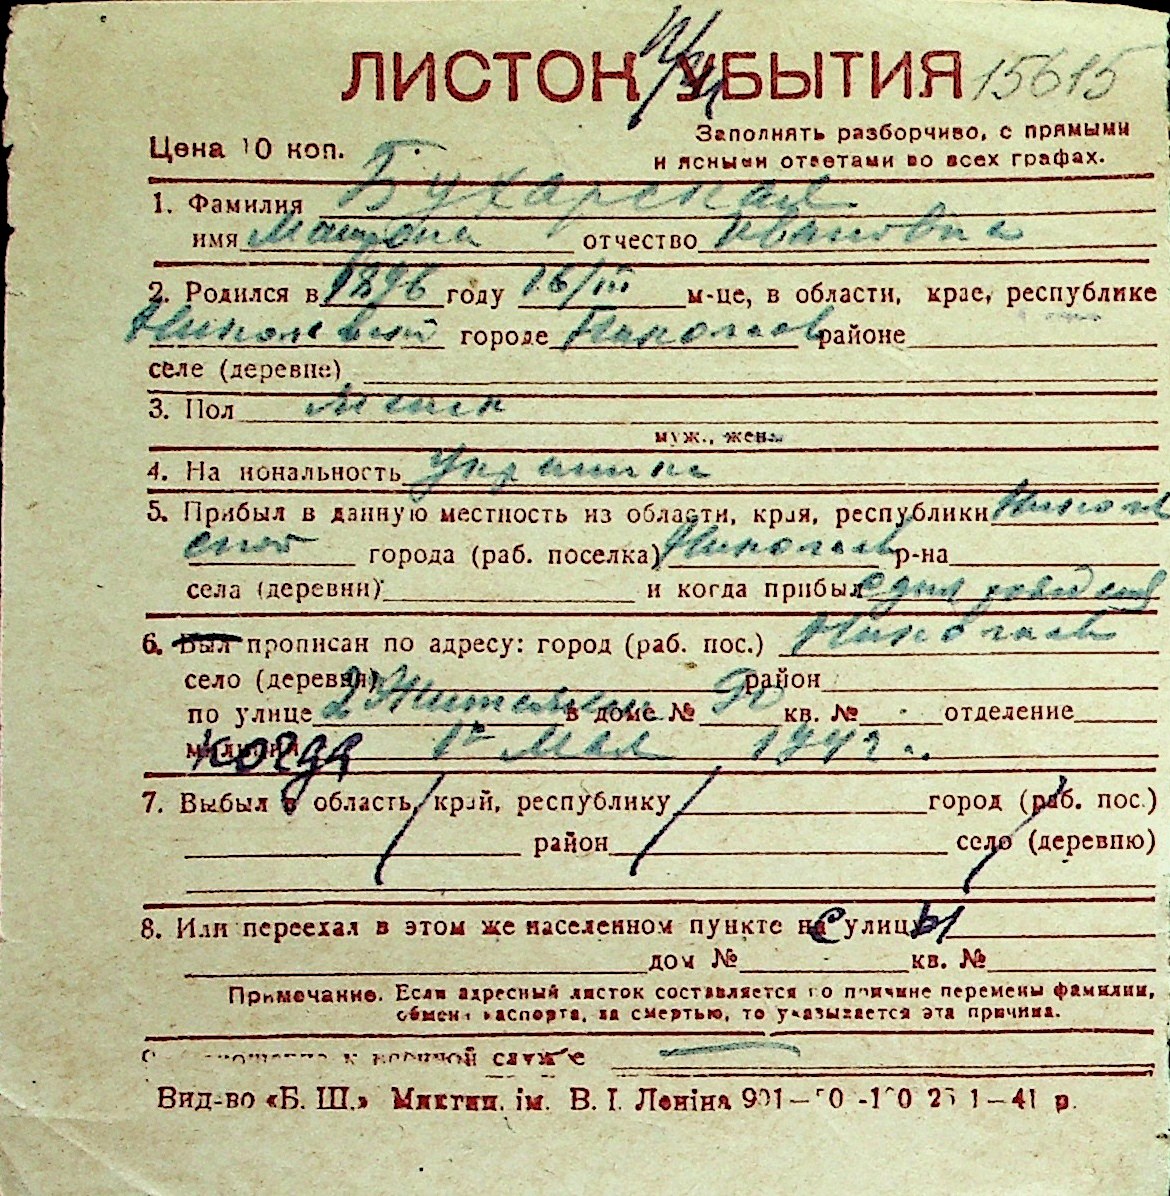 ЛИСТОК УБЫТИЯ 15615
Цена 10 коп.
Заполнять разборчиво, с прямыми
и ясными ответами во всех графах.
1. Фамилия Бухарская
имя Матрона отчество Ивановна
2. Родился в 1896 году 16/III м-це, в области, крае, республике
городе Николаев районе
селе (деревне)
3. Пол женск
муж., жен.
4. Национальность украинка
5. Прибыл в данную местность из области, края, республики Николаев
ской города (раб. поселка) Николаев р-на
села (деревни) и когда прибыл с дня рождения
6. Был прописан по адресу: город (раб. пос.) Николаев
село (деревня) район
по улице 2 в доме № 90 кв. № отделение
милиции когда 1го мая 1942 г.
7. Выбыл в область, край, республику город (раб. пос.)
район село (деревню)
8. Или переехал в этом же населенном пункте на с улицы
дом № кв. №
Примечание. Если адресный листок составляется по причине перемены фамилии,
обмена паспорта, за смертью, то указывается эта причина.
к военной службе
Вид-во «Б. Ш.» Миктип. ім. В. І. Леніна